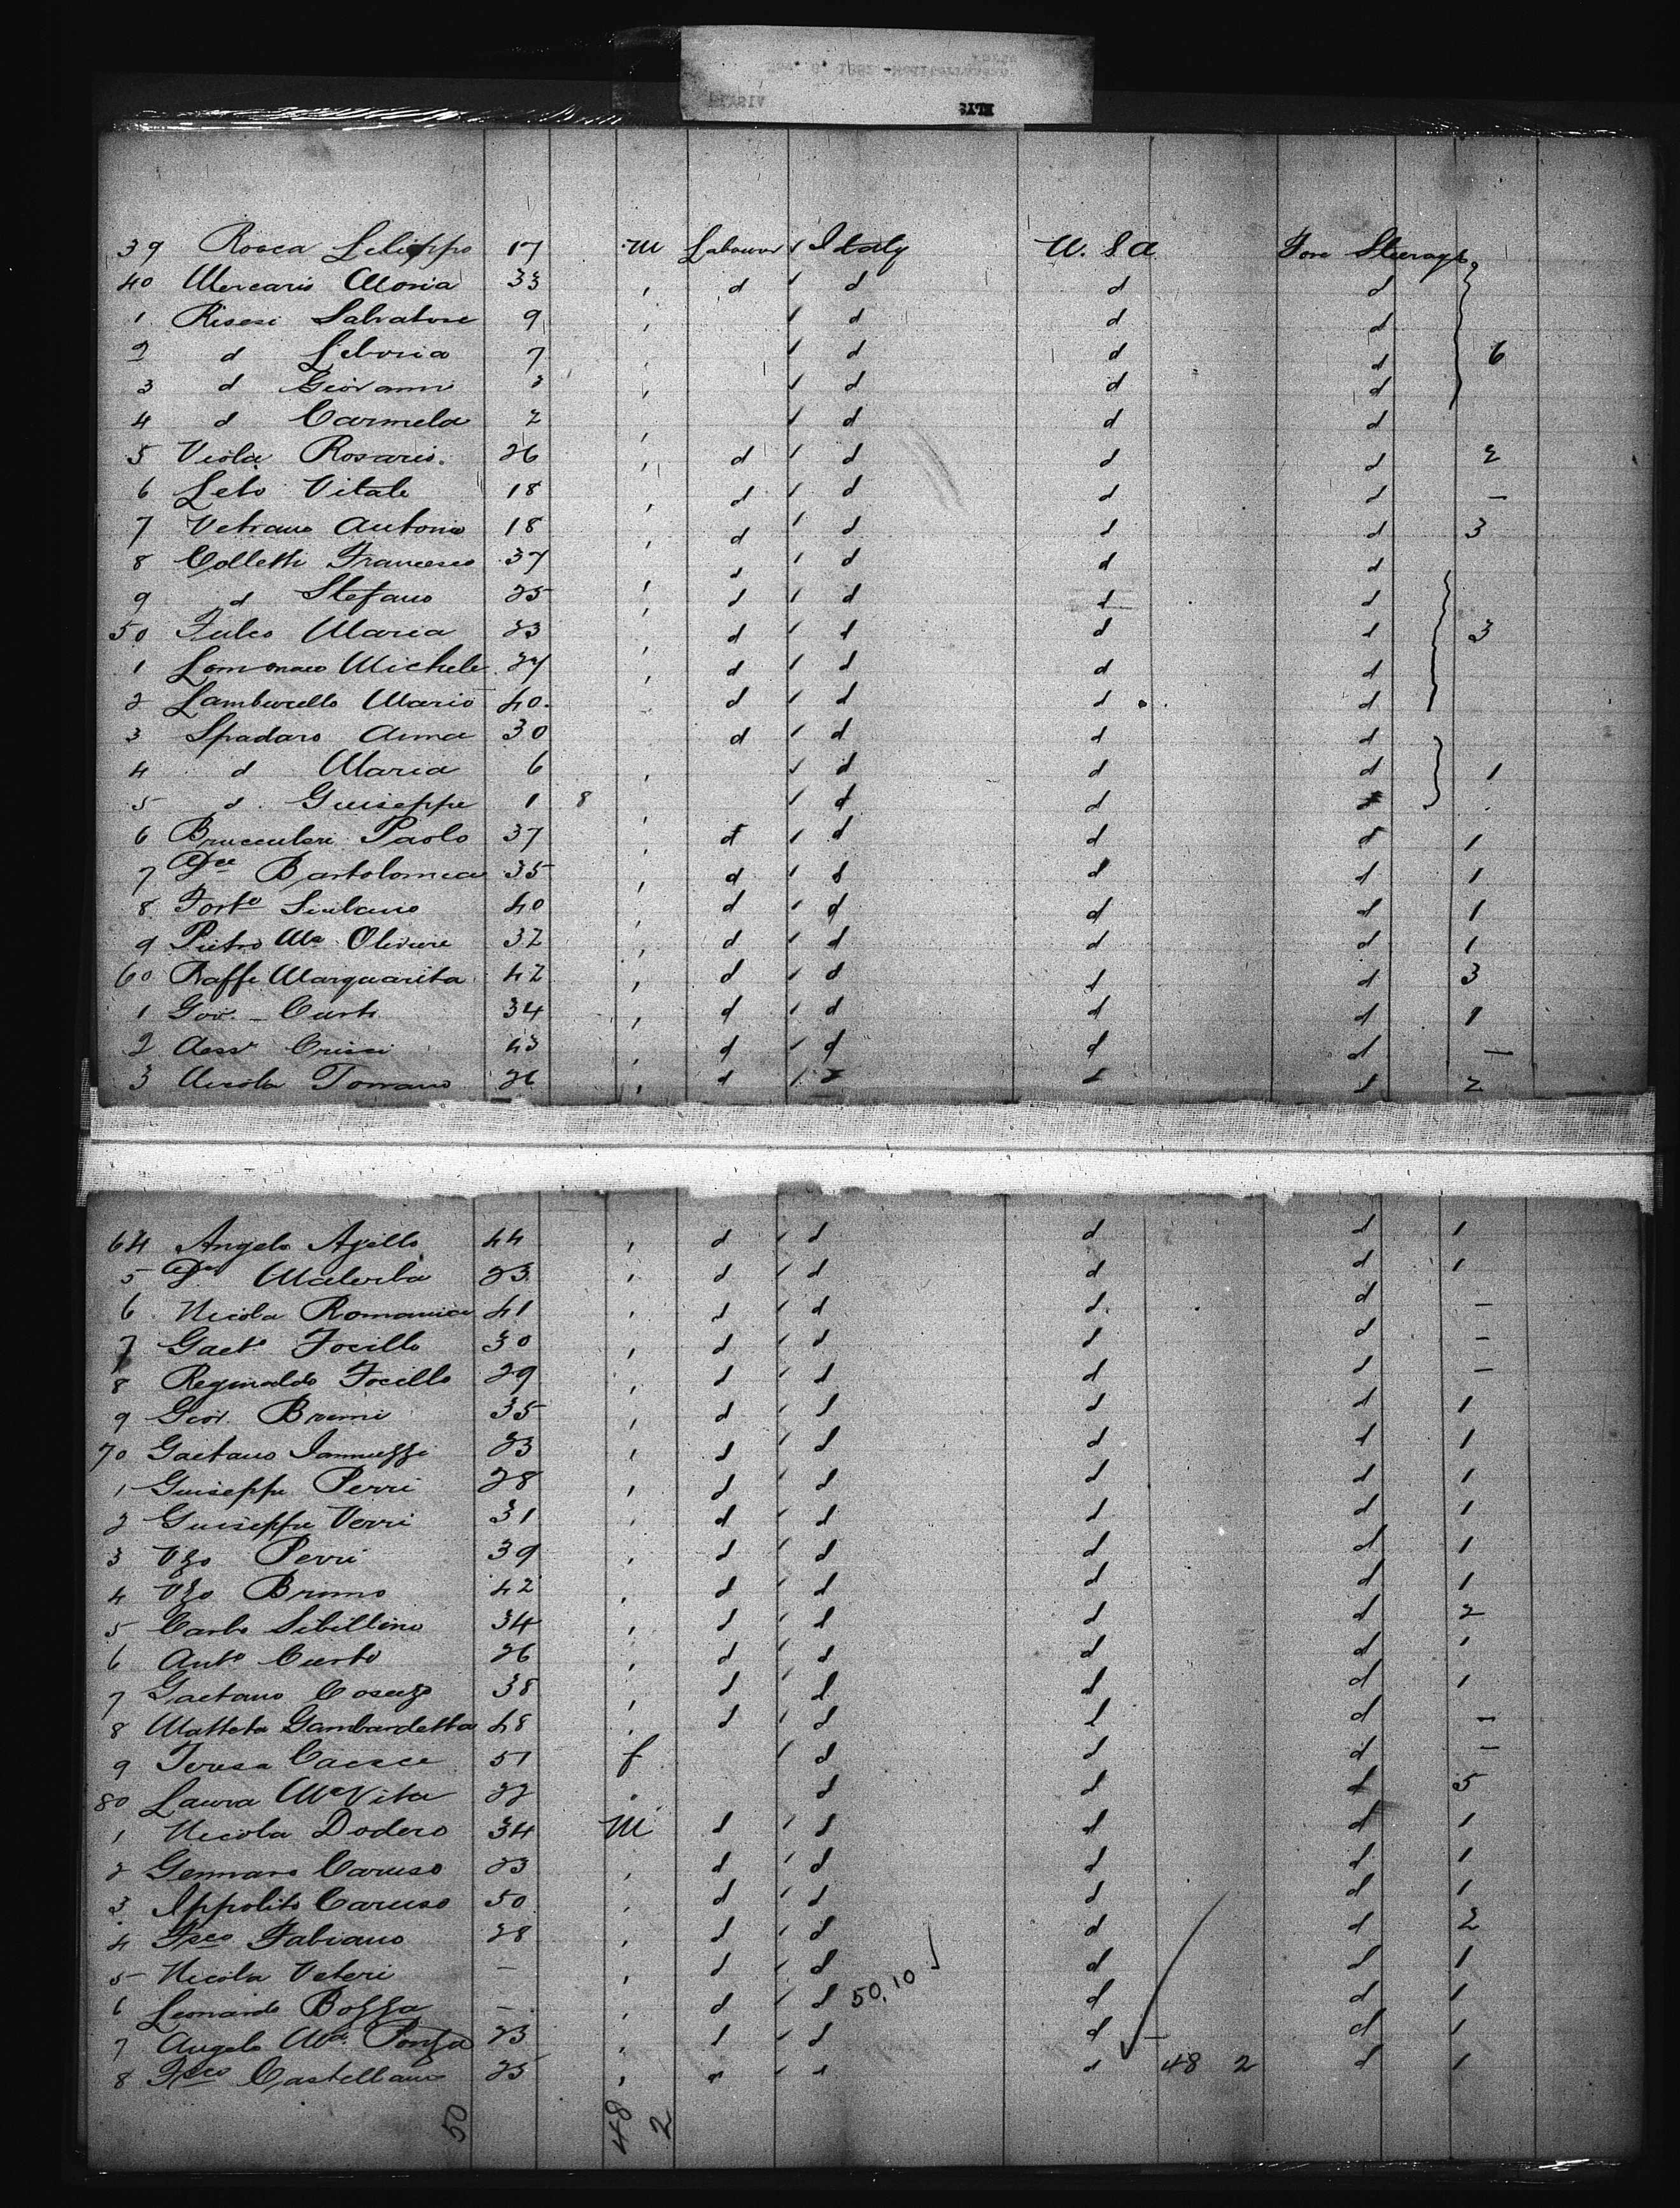 ELYSIA
39 Rosca Lilippo 17 M Labourer ✓ Italy U.S.A. Fore Steerage
40 Mercario Maria 33 , d ✓ d d d
1 Risesi Salvatore 9 , ✓ d d d
2 d Liboria 7 , ✓ d d d 6
3 d Giovanni 3 , ✓ d d d
4 d Carmela 2 , ✓ d d d
5 Viola Rosario. 26 , d ✓ d d d 2
6 Leto Vitale 18 , d ✓ d d d —
7 Vetrano Antonio 18 , d ✓ d d d 3
8 Colletti Francesco 37 , d ✓ d d d
9 d Stefano 25 , d ✓ d d d
50 Maria 23 , d ✓ d d d 3
1 Lomonaco Michele 27 , d ✓ d d d
2 Mario 40 d ✓ d d d
3 Spadaro Anna 30 d ✓ d d d
4 d Maria 6 , ✓ d d d 1
5 d Guiseppe 1 8 , ✓ d d d
6 Bruccoleri Paolo 37 , d ✓ d d d 1
7 Bartolomea 35 , d ✓ d d d 1
8 Forto 40 , d ✓ d d d 1
9 Pietro Ma Oliviere 32 , d ✓ d d d 1
60 Raffe Marguarita 42 , d ✓ d d d 3
1 Gov. Curti 34 , d ✓ d d d 1
2 Crisci 43 , d ✓ d d d —
3 Nicola Torrano 26 , d ✓ d d d 2
64 Angelo Ajello 44 , d ✓ d d d 1
5 Malerba 23 , d ✓ d d d 1
6 Nicola Romanica 41 , d ✓ d d d —
7 Gaeto Focillo 30 , d ✓ d d d —
8 Reginaldo Focillo 29 , d ✓ d d d —
9 Giov. Brumi 35 , d ✓ d d d 1
70 Gaetano Iannuzzi 23 , d ✓ d d d 1
1 Guiseppe Perri 28 , d ✓ d d d 1
2 Guiseppe Verri 31 , d ✓ d d d 1
3 Vzo Perri 39 , d ✓ d d d 1
4 Vzo Bruno 42 , d ✓ d d d 1
5 Carlo Sibillino 34 , d ✓ d d d 2
6 Anto Curto 26 , d ✓ d d d 1
7 Gaetano Cosenzo 38 , d ✓ d d d 1
8 Matteta Gambardetta 48 , d ✓ d d d —
9 Teresa 51 f ✓ d d d —
80 Laura Ma Vita 22 , d d d 5
1 Nicola Dodero 34 M d ✓ d d d 1
2 Gennaro Caruso 23 , d ✓ d d d 1
3 Ippolito Caruso 50 , d ✓ d d d 1
4 Fsco Fabiano 28 , d ✓ d d d 2
5 Nicola Veteri — , d ✓ d d d 1
6 Leonardo Bozza — , d ✓ d 50.10 d d 1
7 Angelo Ma Ponza 23 , d ✓ d d d 1
8 Fsco Castellano 25 , d ✓ d d 48 2 d 1
50 48 2